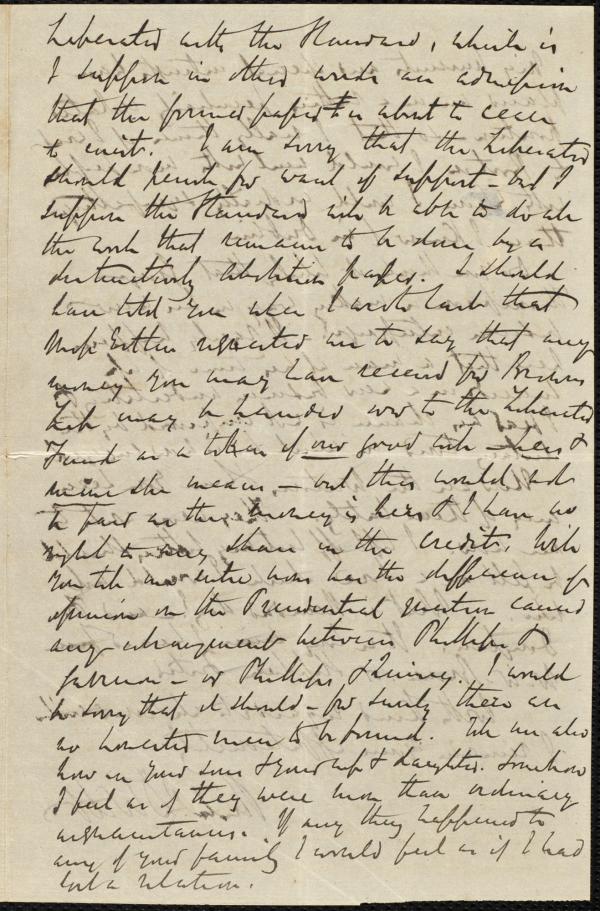 Liberator with the Standard, which is
I suppose in other words an admission
that the former paper is about to cease
to exist. I am sorry that the Liberator
should perish for want of support - but I
suppose the Standard will be able to do all
the work that remains to be done by a
distinctively abolition paper. I should
have told you when I wrote last that
Miss Estlin requested me to say that any
money you may have received for Browns
Life may be handed over to the Liberator
Fund as a token of our good will - hers &
mine she means - but this would not
be fair as the money is hers & I have no
right to any share in the credit. Will
you tell me entre nous has the difference of
opinion on the Presidential question caused
any estrangement between Phillips &
Garrison - or Phillips & Quincy. I would
be sorry that it should - for surely there are
no honester men to be found. Tell me also
how are your sons & your wife & daughter. Somehow
I feel as if they were more than ordinary
acquaintances. If any thing happened to
any of your family I would feel as if I had
lost a relation.